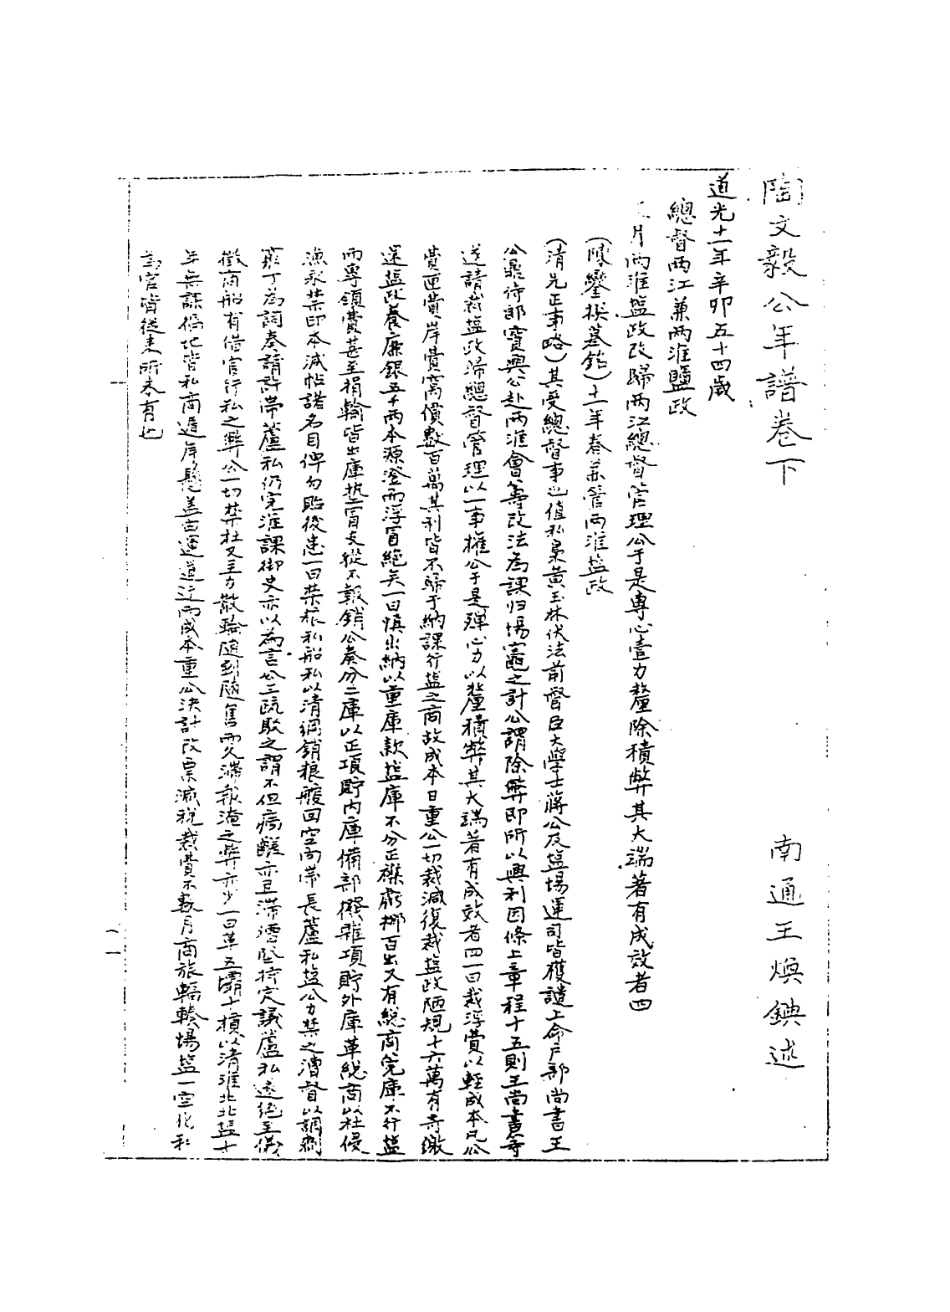 陶文毅公年譜卷下
南通王煥鍈述
道光十一年辛卯五十四歲
總督兩江兼兩淮鹽政
月兩淮塩政改歸兩江總督官理公于是專心壹力釐除積弊其大端著有成效者四
(陳鑾撰墓銘)十一年春兼管兩淮塩政
(清先正事略)其受總督事也值私梟黃玉林伏法前督臣大學士蔣公及塩場運司皆獲譴上命户部尚書王
公鼎侍郎寶興公赴兩淮會籌改法為課归場竈之計公謂除弊即所以興利因條上章程十五則王尚書等
遂請裁塩政歸總督管理以一事權公于是殫心力以釐積弊其大端著有成效者四一曰裁浮費以輕成本凡公
費匣費岸費窩價數百萬其利皆不歸于納課行塩之商故成本日重公一切裁減復裁塩政陋規十六萬有奇繳
還塩政養廉銀五千兩本源澄而浮冒絕矣一曰慎出納以重庫款塩庫不分正雜虧挪百出又有總商完庫不行塩
而專領費甚至捐輸皆出庫墊冒支從不報銷公奏分二庫以正項貯內庫備部撥雜項貯外庫革總商以杜侵
漁永禁印本減帖諸名目俾勿貽後患一曰禁粮私船私以清綱銷粮艘回空向帶長蘆私塩公力禁之漕督以調劑
窮丁為詞奏請許帶蘆私仍完淮課御史亦以為言公三疏駁之謂不但病鹾亦且滯漕堅持定議蘆私遂絕至儀
徵商船有借官行私之弊公一切禁杜又主力散輪随到隨售而久滯報淹之弊亦少一曰革五壩十槓以清淮北北塩十
年無課徧地皆私商進岸懸蓋由運道迂而成本重公決計改票減稅裁費不數月商旅輻輳場塩一空化私
為官皆從來所未有也